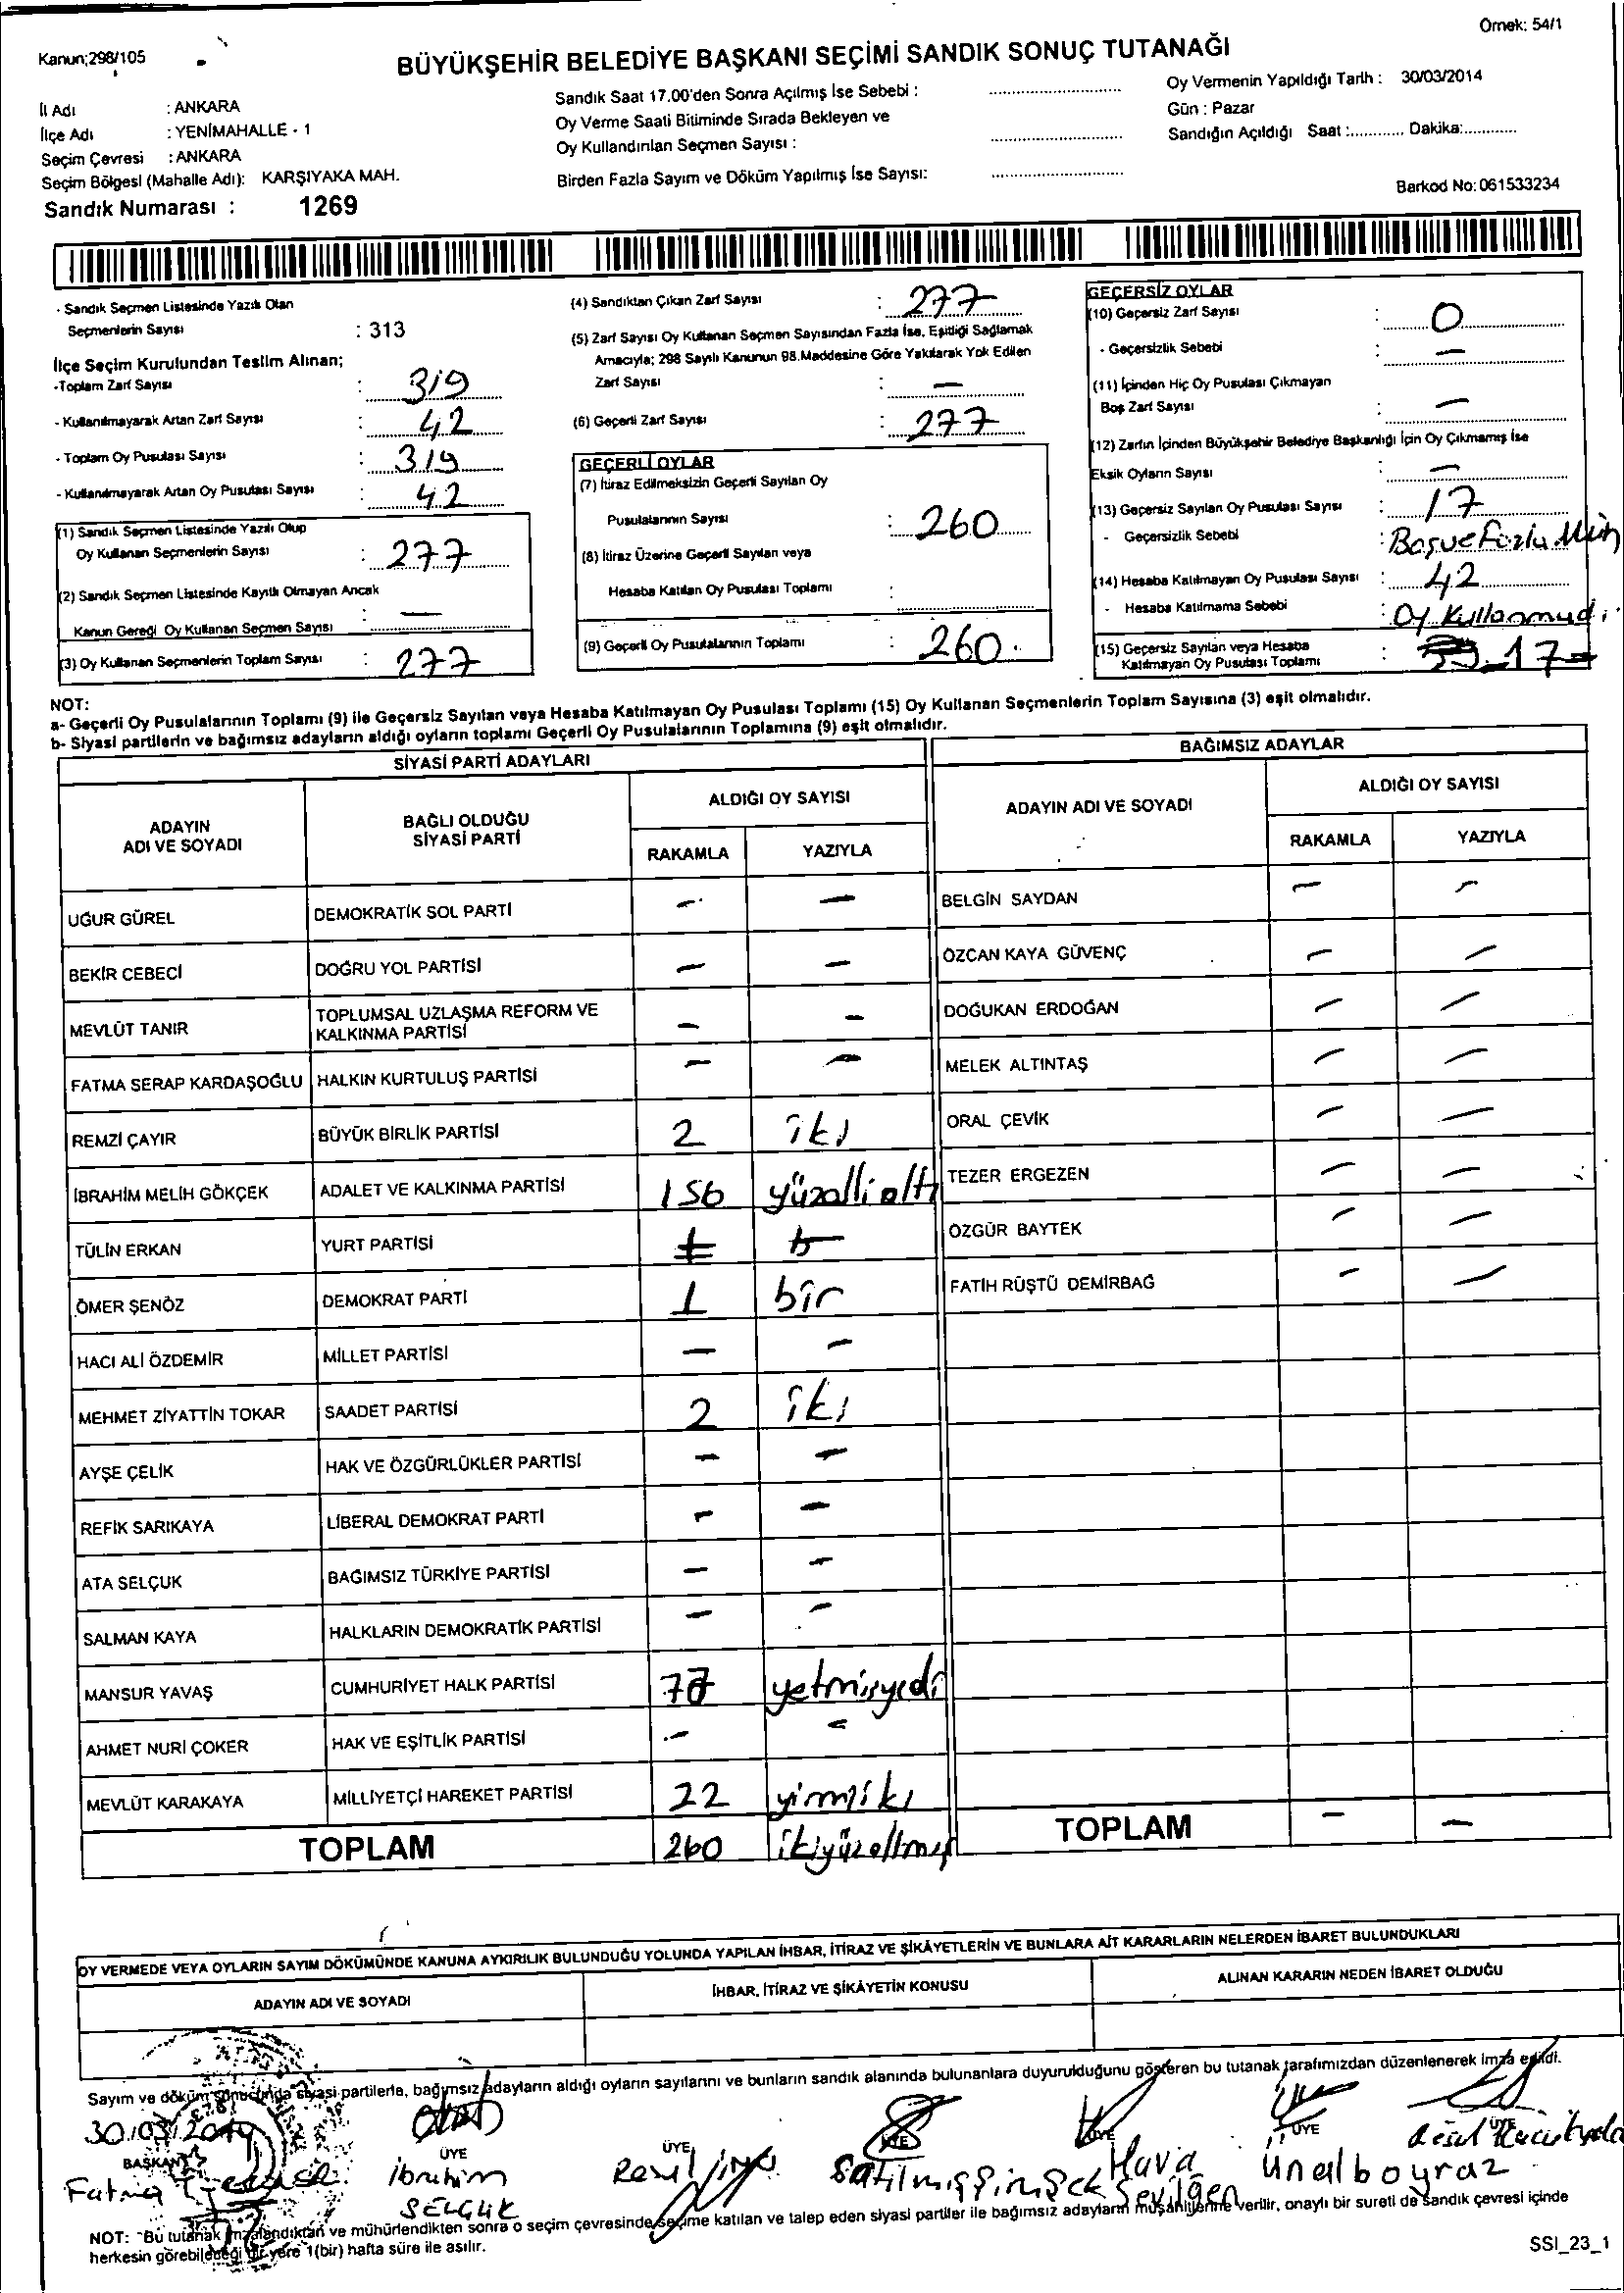 Örnek: 54/1
Kanun;298/105
BÜYÜKŞEHİR BELEDİYE BAŞKANI SEÇİMİ SANDIK SONUÇ TUTANAĞI
İl Adı : ANKARA
İlçe Adı : YENİMAHALLE - 1
Seçim Çevresi : ANKARA
Seçim Bölgesi (Mahalle Adı): KARŞIYAKA MAH.
Sandık Numarası : 1269
Sandık Saat 17.00'den Sonra Açılmış İse Sebebi :
Oy Verme Saati Bitiminde Sırada Bekleyen ve
Oy Kullandırılan Seçmen Sayısı :
Birden Fazla Sayım ve Döküm Yapılmış İse Sayısı:
Oy Vermenin Yapıldığı Tarih : 30/03/2014
Gün : Pazar
Sandığın Açıldığı Saat :............ Dakika:............
Barkod No: 061533234
- Sandık Seçmen Listesinde Yazılı Olan
Seçmenlerin Sayısı : 313
İlçe Seçim Kurulundan Teslim Alınan;
-Toplam Zarf Sayısı : 319
- Kullanılmayarak Artan Zarf Sayısı : 42
- Toplam Oy Pusulası Sayısı : 319
- Kullanılmayarak Artan Oy Pusulası Sayısı : 42
(1) Sandık Seçmen Listesinde Yazılı Olup
Oy Kullanan Seçmenlerin Sayısı : 277
(2) Sandık Seçmen Listesinde Kayıtlı Olmayan Ancak
Kanun Gereği Oy Kullanan Seçmen Sayısı : —
(3) Oy Kullanan Seçmenlerin Toplam Sayısı : 277
(4) Sandıktan Çıkan Zarf Sayısı : 277
(5) Zarf Sayısı Oy Kullanan Seçmen Sayısından Fazla İse, Eşitliği Sağlamak
Amacıyla; 298 Sayılı Kanunun 98.Maddesine Göre Yakılarak Yok Edilen
Zarf Sayısı : —
(6) Geçerli Zarf Sayısı : 277
GEÇERLİ OYLAR
(7) İtiraz Edilmeksizin Geçerli Sayılan Oy
Pusulalarının Sayısı : 260
(8) İtiraz Üzerine Geçerli Sayılan veya
Hesaba Katılan Oy Pusulası Toplamı :
(9) Geçerli Oy Pusulalarının Toplamı : 260
GEÇERSİZ OYLAR
(10) Geçersiz Zarf Sayısı : 0
- Geçersizlik Sebebi : —
(11) İçinden Hiç Oy Pusulası Çıkmayan
Boş Zarf Sayısı : —
(12) Zarfın İçinden Büyükşehir Belediye Başkanlığı İçin Oy Çıkmamış İse
Eksik Oyların Sayısı : —
(13) Geçersiz Sayılan Oy Pusulası Sayısı : 17
- Geçersizlik Sebebi : Boş ve Fazla Müh
(14) Hesaba Katılmayan Oy Pusulası Sayısı : 42
- Hesaba Katılmama Sebebi : Oy Kullanmadı
(15) Geçersiz Sayılan veya Hesaba
Katılmayan Oy Pusulası Toplamı : 17
NOT:
a- Geçerli Oy Pusulalarının Toplamı (9) ile Geçersiz Sayılan veya Hesaba Katılmayan Oy Pusulası Toplamı (15) Oy Kullanan Seçmenlerin Toplam Sayısına (3) eşit olmalıdır.
b- Siyasi partilerin ve bağımsız adayların aldığı oyların toplamı Geçerli Oy Pusulalarının Toplamına (9) eşit olmalıdır.
SİYASİ PARTİ ADAYLARI
ADAYIN ADI VE SOYADI
BAĞLI OLDUĞU SİYASİ PARTİ
ALDIĞI OY SAYISI
RAKAMLA YAZIYLA
UĞUR GÜREL DEMOKRATİK SOL PARTİ - —
BEKİR CEBECİ DOĞRU YOL PARTİSİ — —
MEVLÜT TANIR TOPLUMSAL UZLAŞMA REFORM VE KALKINMA PARTİSİ — —
FATMA SERAP KARDAŞOĞLU HALKIN KURTULUŞ PARTİSİ — —
REMZİ ÇAYIR BÜYÜK BİRLİK PARTİSİ 2 iki
İBRAHİM MELİH GÖKÇEK ADALET VE KALKINMA PARTİSİ 156 yüzellialtı
TÜLİN ERKAN YURT PARTİSİ
ÖMER ŞENÖZ DEMOKRAT PARTİ 1 bir
HACI ALİ ÖZDEMİR MİLLET PARTİSİ — —
MEHMET ZİYATTİN TOKAR SAADET PARTİSİ 2 iki
AYŞE ÇELİK HAK VE ÖZGÜRLÜKLER PARTİSİ — —
REFİK SARIKAYA LİBERAL DEMOKRAT PARTİ - —
ATA SELÇUK BAĞIMSIZ TÜRKİYE PARTİSİ — —
SALMAN KAYA HALKLARIN DEMOKRATİK PARTİSİ — —
MANSUR YAVAŞ CUMHURİYET HALK PARTİSİ 77 yetmişyedi
AHMET NURİ ÇOKER HAK VE EŞİTLİK PARTİSİ - -
MEVLÜT KARAKAYA MİLLİYETÇİ HAREKET PARTİSİ 22 yirmiiki
TOPLAM 260 ikiyüzaltmış
BAĞIMSIZ ADAYLAR
ADAYIN ADI VE SOYADI
ALDIĞI OY SAYISI
RAKAMLA YAZIYLA
BELGİN SAYDAN — —
ÖZCAN KAYA GÜVENÇ — —
DOĞUKAN ERDOĞAN — —
MELEK ALTINTAŞ — —
ORAL ÇEVİK — —
TEZER ERGEZEN — —
ÖZGÜR BAYTEK — —
FATİH RÜŞTÜ DEMİRBAĞ — —
TOPLAM — —
OY VERMEDE VEYA OYLARIN SAYIM DÖKÜMÜNDE KANUNA AYKIRILIK BULUNDUĞU YOLUNDA YAPILAN İHBAR, İTİRAZ VE ŞİKÂYETLERİN VE BUNLARA AİT KARARLARIN NELERDEN İBARET BULUNDUKLARI
ADAYIN ADI VE SOYADI İHBAR, İTİRAZ VE ŞİKÂYETİN KONUSU ALINAN KARARIN NEDEN İBARET OLDUĞU
Sayım ve döküm sonucunda siyasi partilerle, bağımsız adayların aldığı oyların sayılarını ve bunların sandık alanında bulunanlara duyurulduğunu gösteren bu tutanak tarafımızdan düzenlenerek imza edildi.
30/03/2014
BAŞKAN ÜYE ÜYE ÜYE ÜYE ÜYE ÜYE
Fatma
İbrahim SELÇUK
Satılmış Şimşek
Hava Sevilgen
Ünal boyraz
NOT: Bu tutanak imzalandıktan ve mühürlendikten sonra o seçim çevresinde seçime katılan ve talep eden siyasi partiler ile bağımsız adayların müşahitlerine verilir, onaylı bir sureti de sandık çevresi içinde
herkesin görebileceği bir yere 1(bir) hafta süre ile asılır.
SSI_23_1